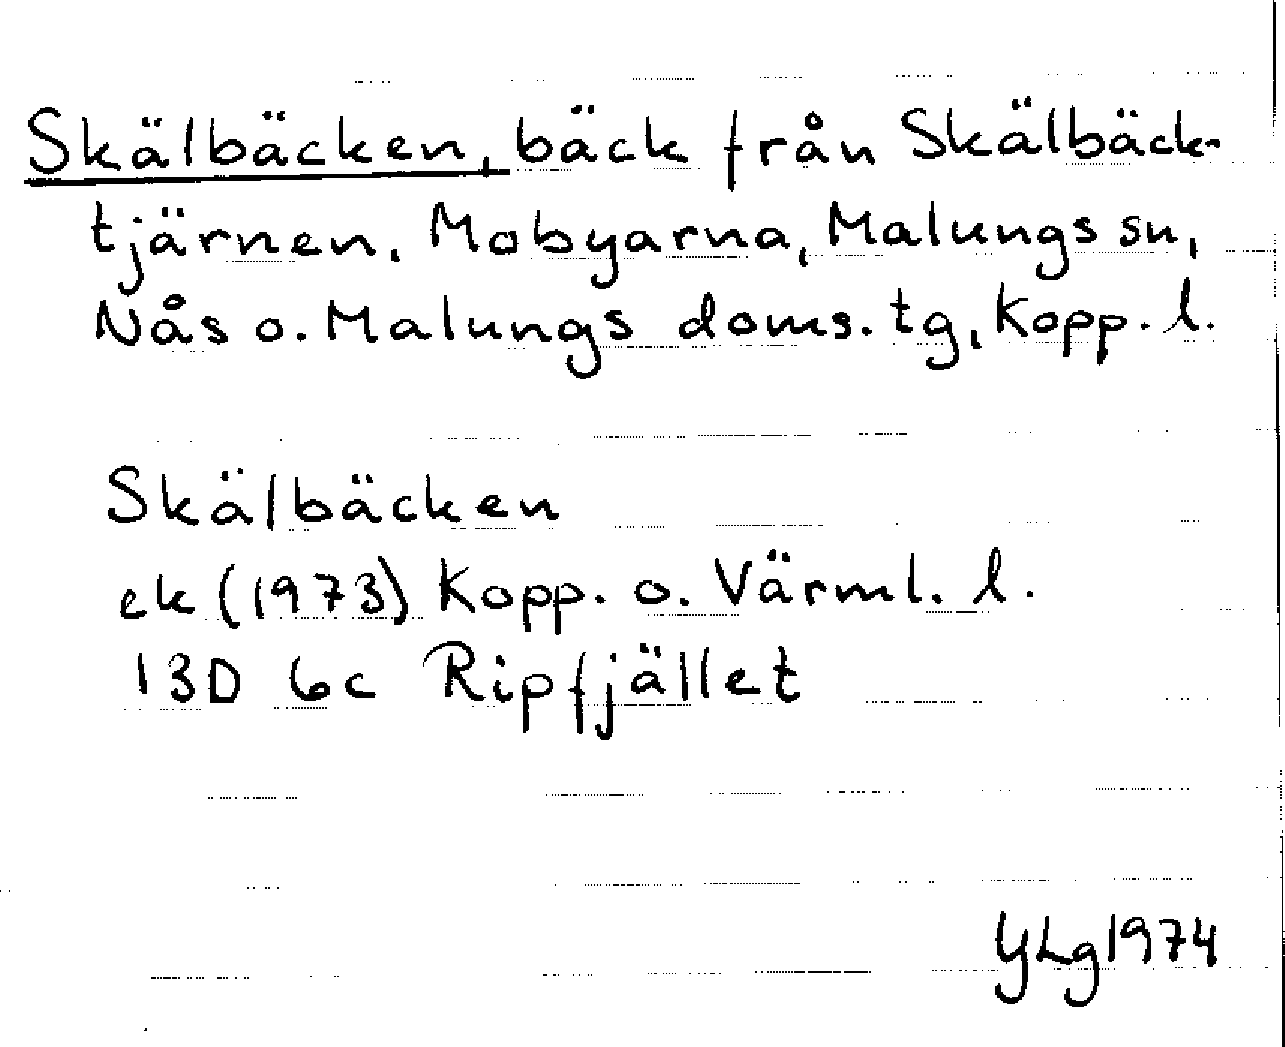 Skälbäcken, bäck från Skälbäck-
tjärnen, Mobyarna, Malungs sn,
Nås o. Malungs doms. tg, Kopp. l.
Skälbäcken
ek (1973) Kopp. o. Värml. l.
13D 6c Ripfjället
YLg 1974